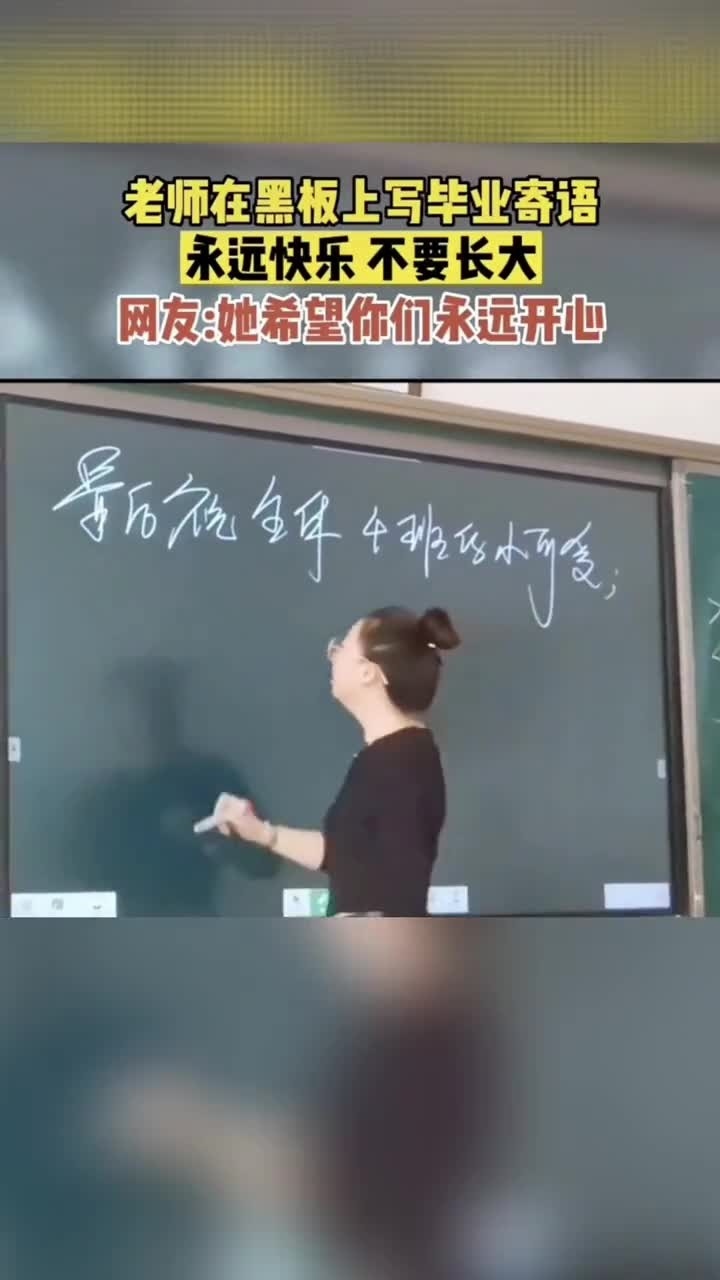 老师在黑板上写毕业寄语
永远快乐 不要长大
网友:她希望你们永远开心
最后祝全体4班的小可爱;